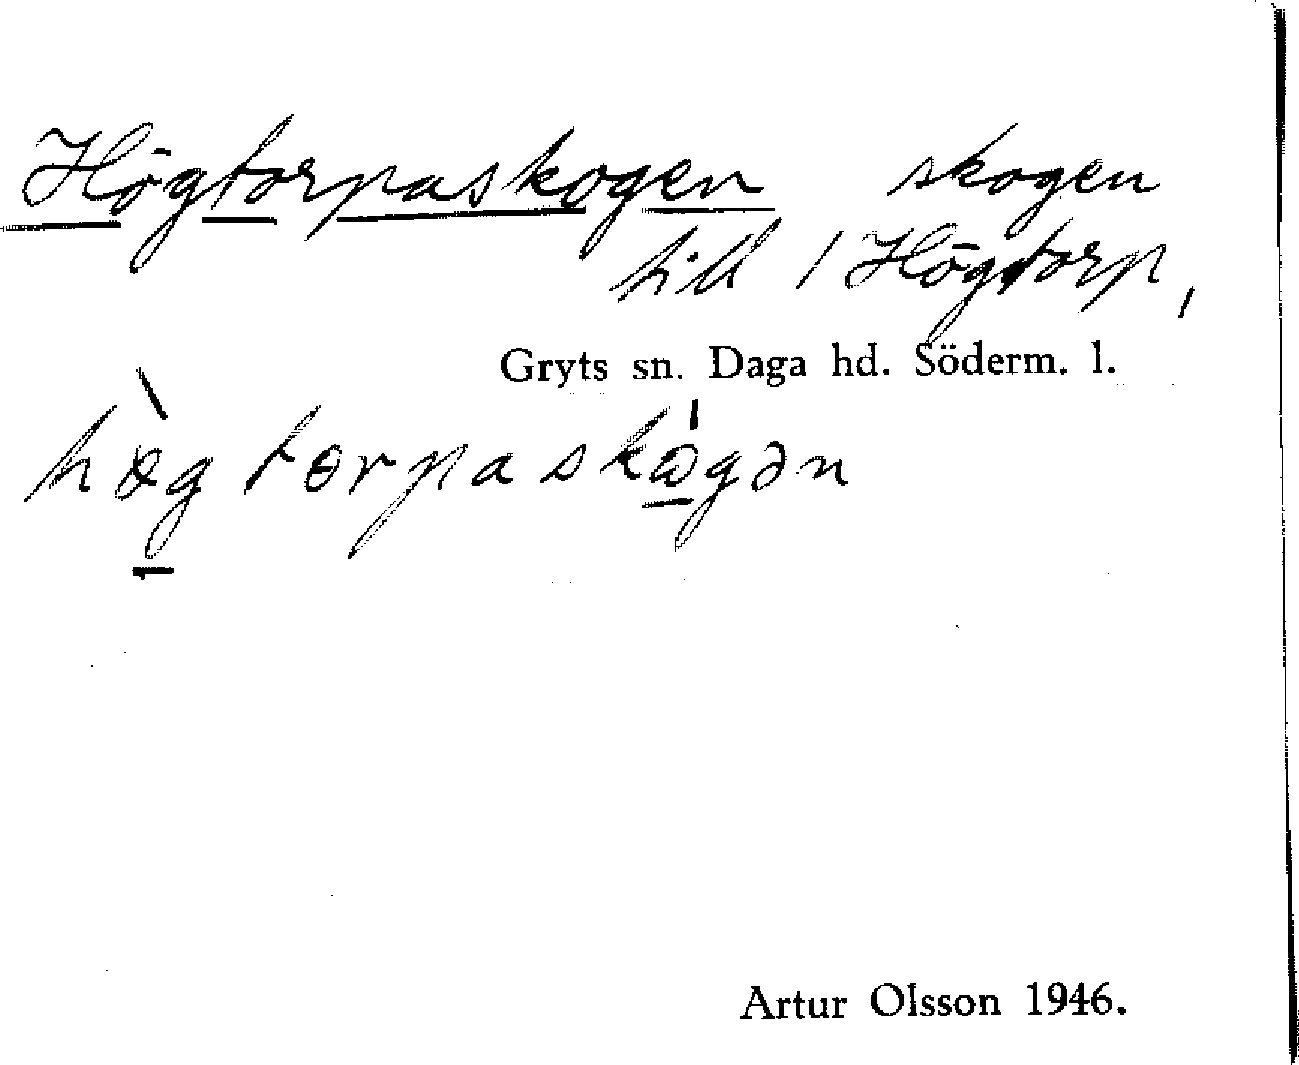 Högtorpaskogen skogen
till / Högtorp,
Gryts sn. Daga hd. Söderm. l.
hø̀g torpaskɷ́gən
Artur Olsson 1946.